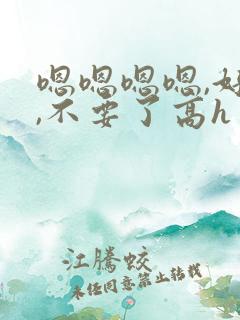 嗯嗯嗯嗯,好
,不要了高h
江腾蛟
未经同意禁止转载